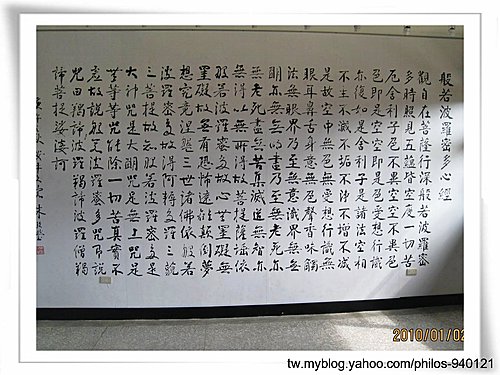 般若波羅蜜多心經
觀自在菩薩行深般若波羅蜜
多時照見五蘊皆空度一切苦
厄舍利子色不異空空不異色
色即是空空即是色受想行識
亦復如是舍利子是諸法空相
不生不滅不垢不淨不增不減
是故空中無色無受想行識無
眼耳鼻舌身意無色聲香味觸
法無眼界乃至無意識界無無
明亦無無明盡乃至無老死亦
無老死盡無苦集滅道無智亦
無得以無所得故菩提薩埵依
般若波羅蜜多故心無罣礙無
罣礙故無有恐怖遠離顛倒夢
想究竟涅槃三世諸佛依般若
波羅蜜多故得阿耨多羅三藐
三菩提故知般若波羅蜜多是
大神咒是大明咒是無上咒是
無等等咒能除一切苦真實不
虛故說般若波羅蜜多咒即說
咒曰羯諦波羅羯諦波羅僧羯
諦菩提娑婆訶
2010/01/02
tw.myblog.yahoo.com/philos-940121